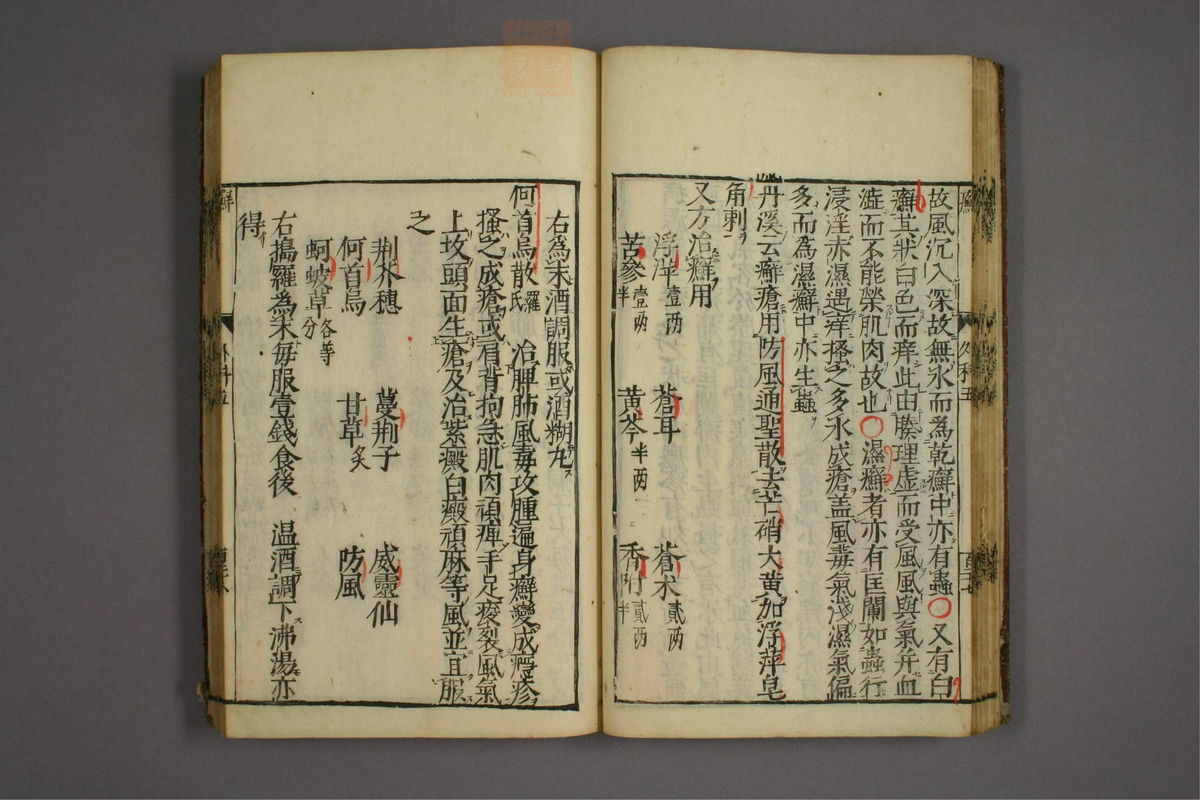 故風沉入深故無水而為乾癬中亦有蟲○又有白
癬其狀白色而痒此由腠理虛而受風風與氣并血
澁而不能榮肌肉故也○濕癬者亦有匡闌如蟲行
浸淫亦濕遇痒搔之多水成瘡盖風毒氣淺濕氣偏
多而為濕癬中亦生蟲
丹溪云癬瘡用防風通聖散去芒硝大黄加浮萍皂
角刺
又方治癬用
浮萍壹两 蒼耳 蒼术貳两
苦參壹两半 黄芩半两 香附貳两半
右為末酒調服或酒糊丸
何首烏散羅氏 治脾肺風毒攻腫遍身癬變成癮疹
搔之成瘡或肩背拘急肌肉頑痺手足皴裂風氣
上攻頭面生瘡及治紫癜白癜頑麻等風並宜服
之
荆芥穗 蔓荆子 威靈仙
何首烏 甘草炙 防風
蚵蚾草各等分
右搗羅為末每服壹錢食後 温酒調下沸湯亦
得